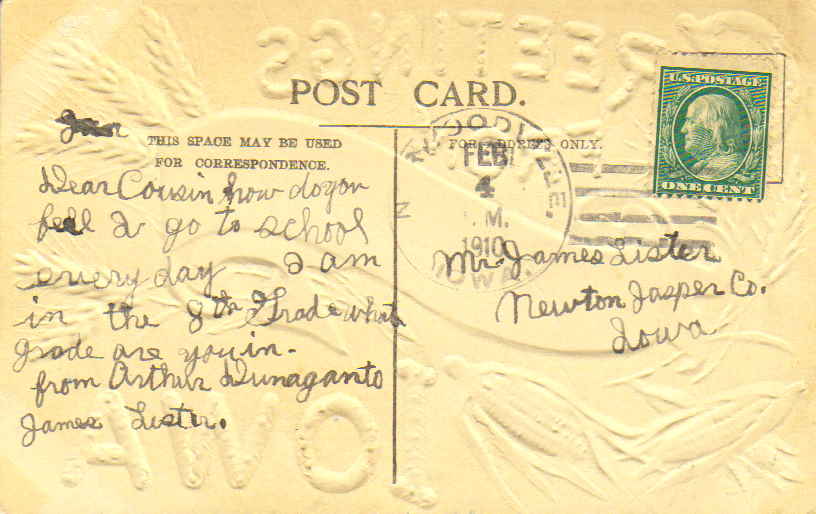 GREETINGS
POST CARD.
THIS SPACE MAY BE USED
FOR CORRESPONDENCE.
FOR ADDRESS ONLY.
U.S. POSTAGE
ONE CENT
FEB
4
M.
1910
IOWA.
Dear Cousin how do you
fell I go to school
every day I am
in the 8th Grade what
grade are you in-
from Arthur Dunagan to
James Lister.
Mr. James Lister
Newton Jasper Co.
Iowa
IOWA